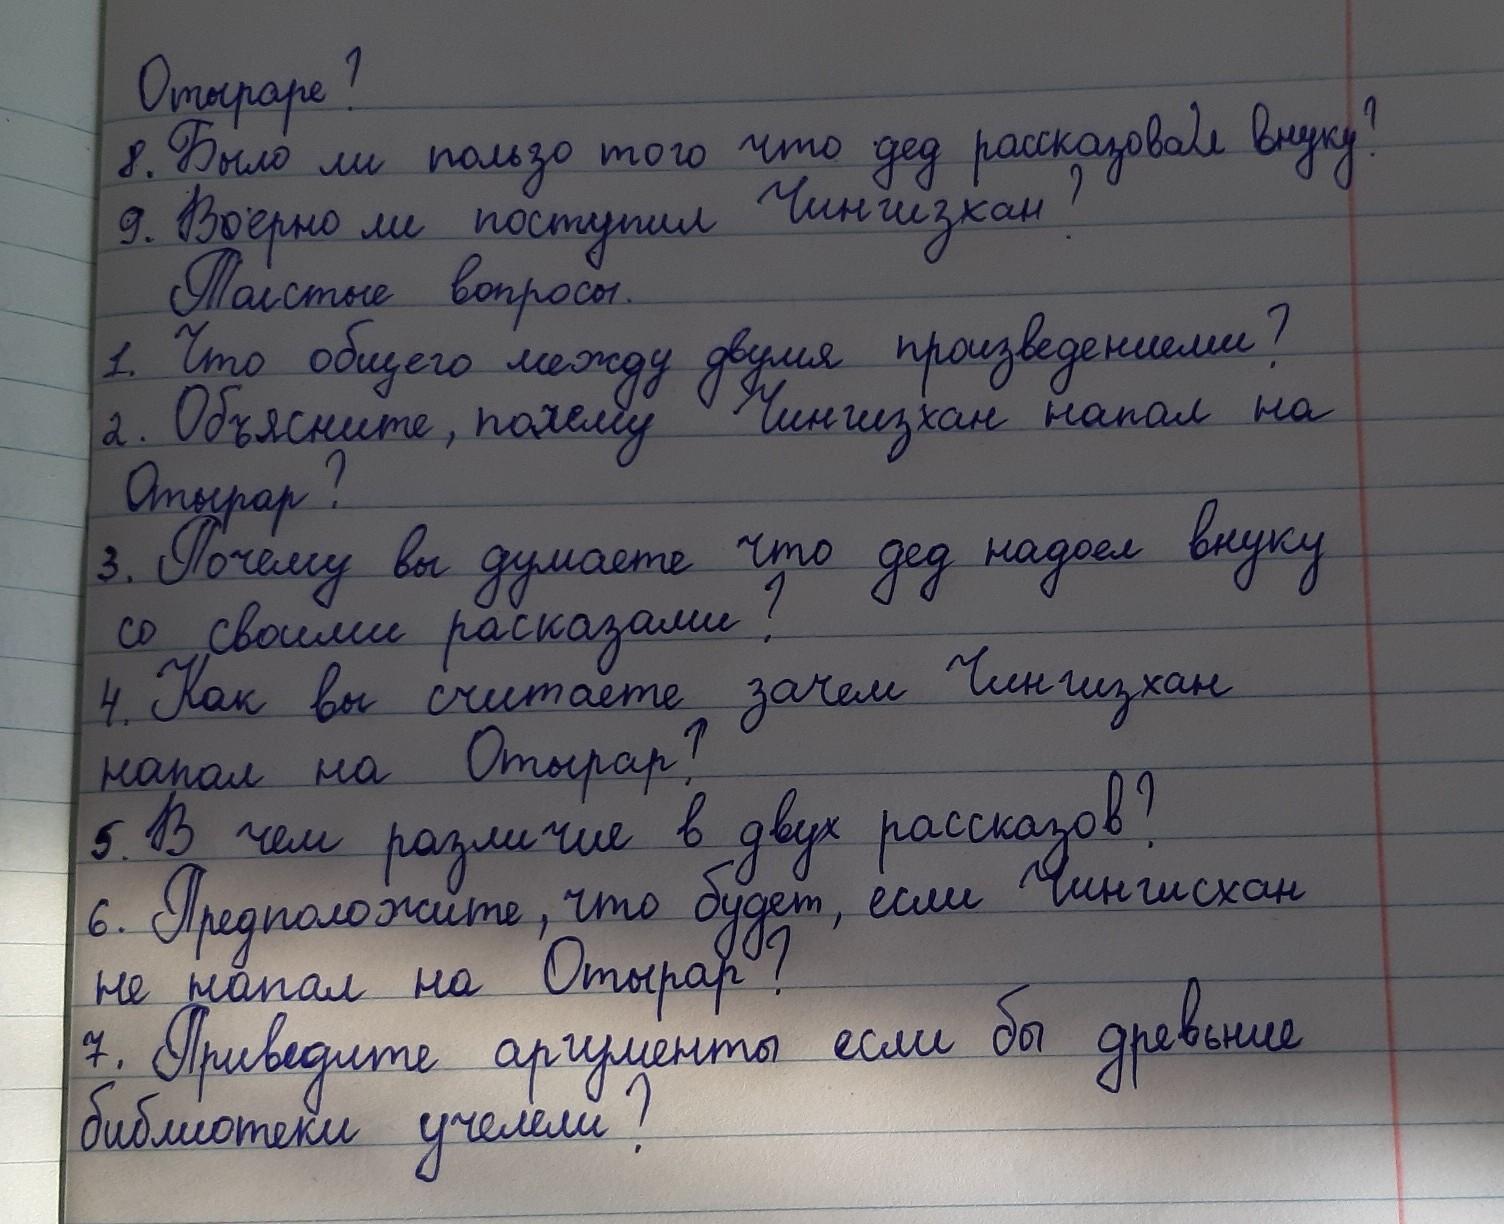 Отыраре?
8. Было ли пользо того что дед рассказовал внуку?
9. Воерно ли поступил Чингизхан?
Толстые вопросы.
1. Что общего между двумя произведениеми?
2. Объясните, почему Чингизхан напал на
Отырар?
3. Почему вы думаете что дед надоел внуку
со своими расказами?
4. Как вы считаете зачем Чингизхан
напал на Отырар?
5. В чем различие в двух рассказов?
6. Предположите, что будет, если Чингисхан
не напал на Отырар?
7. Приведите аргументы если бы древьние
библиотеки учелели?